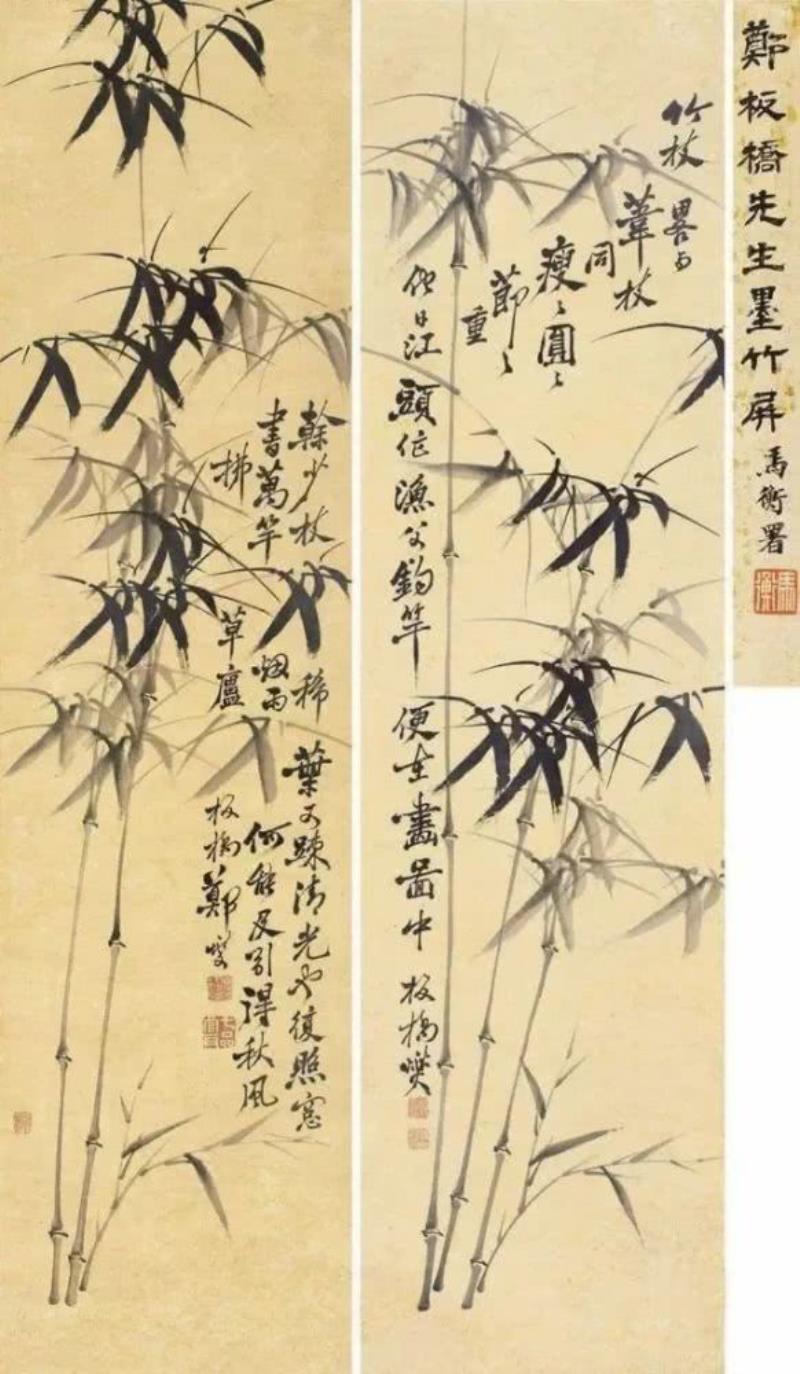 鄭板橋先生墨竹屏
馬衡署
馬衡
竹枝
畧与
葦枝
同
瘦〻圓〻
節〻
重
他日江頭作漁父釣竿便在畫圖中
板橋燮
榦少枝稀葉又疎清光也復照窓
書萬竿烟雨何能及引得秋風
拂草廬
板橋鄭燮